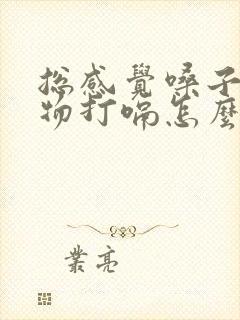 總感覺嗓子
物打嗝怎麼
業亮